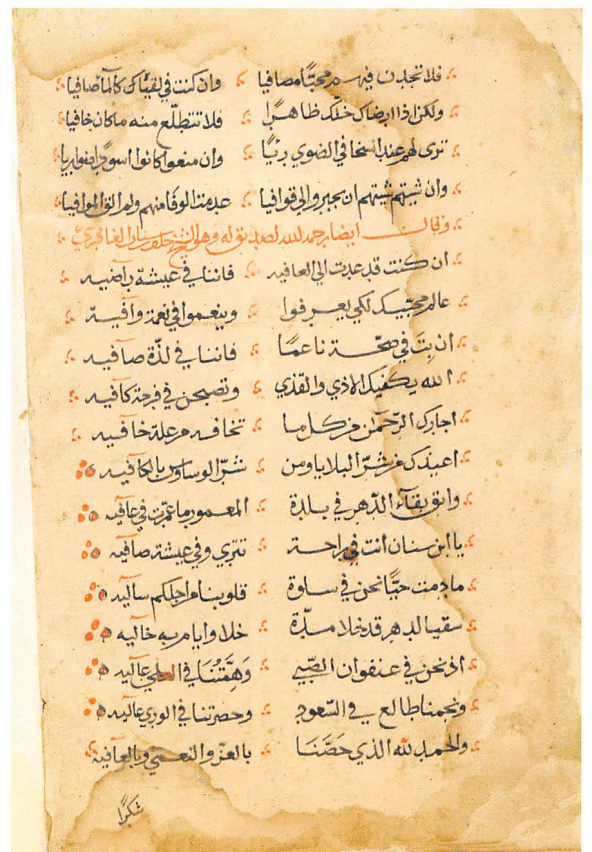 فلا تجدن فيهم محبًّا مصافيا وان كنت في لقيٰاك كالمآ صافيا
ولكن اذا ارضاك خلّك ظاهرًا فلا تتطلّع منه ما كان خافيا
ترى لهم عند السخا في الضوي ريًّا وان منعوا كانوا اسودًا ضواريا
وان شيتهم شيتهم ان يجيروا لي قوافيا عدمت الوفا منهم ولم الق الموافيا
وقال ايضا رحمه الله لصديق له وهو الشيخ خلف بن سنان الغافري
ان كنت قد عدت الى العافيه فاننا في عيشة راضيه
عالم محبّيك لكي يعرفوا وينعموا في نعمة وافيه
ان بِتَ في صحّة ناعمًا فاننا في لذّة صافيه
الله يكفيك الاذي والقذي وتصبحن في فرحة كافيه
اجارك الرّحمٰن من كل ما تخافه من علة خافيه
اعيذك من شرّ البلايا ومن شرّ الوساوس بالكافيه
وابق بقآء الدّهر في بلدة المعمور ما عمّرت في عافيه
يا ابن سنان انت في راحة تتري وفي عيشة صافيه
ما دمت حيًّا نحن في سلوة قلوبنا من اجلكم ساليه
سقيا لدهر قد خلا مدّة خلا وايام به خاليه
اذ نحن في عنفوان الصّبي وَهِمَّتُنَا في العلي عاليه
ونجمنا طالع في السّعود وحضرتنا في الوري عاليه
والحمد لله الذي خصَّنَا بالعزّ والنعمي وبالعافيه
شكرًا